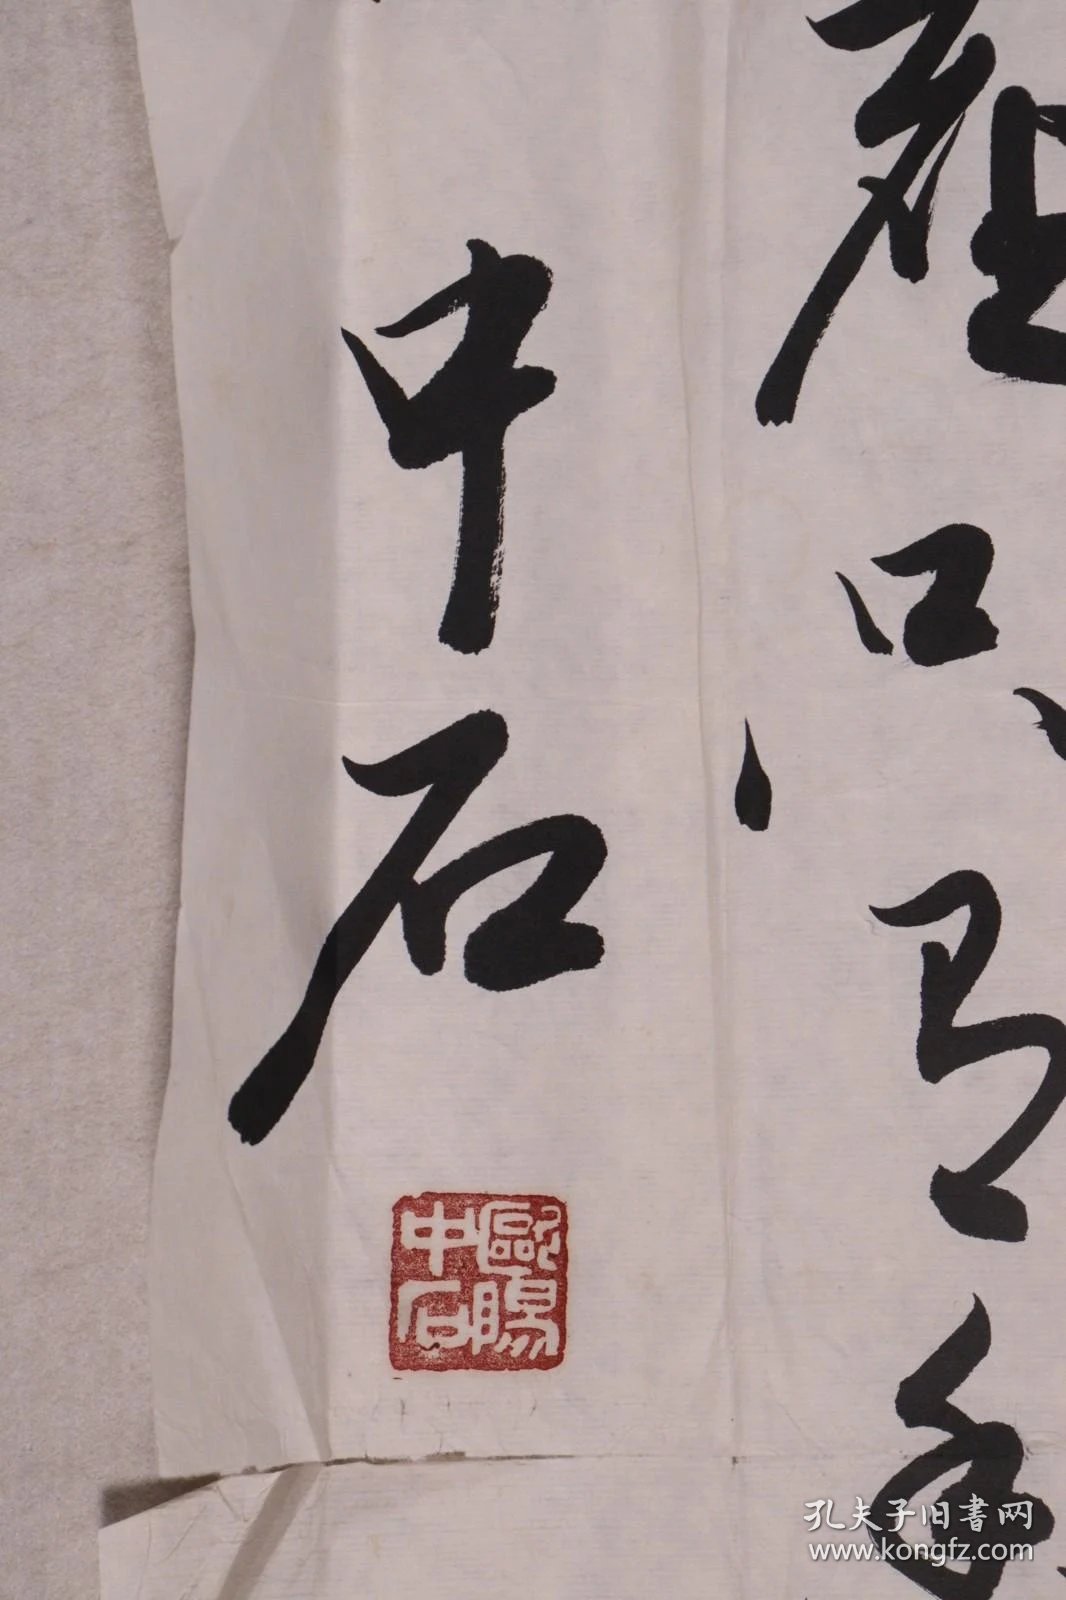 只有香
中石
歐陽中石
孔夫子旧書网
www.kongfz.com